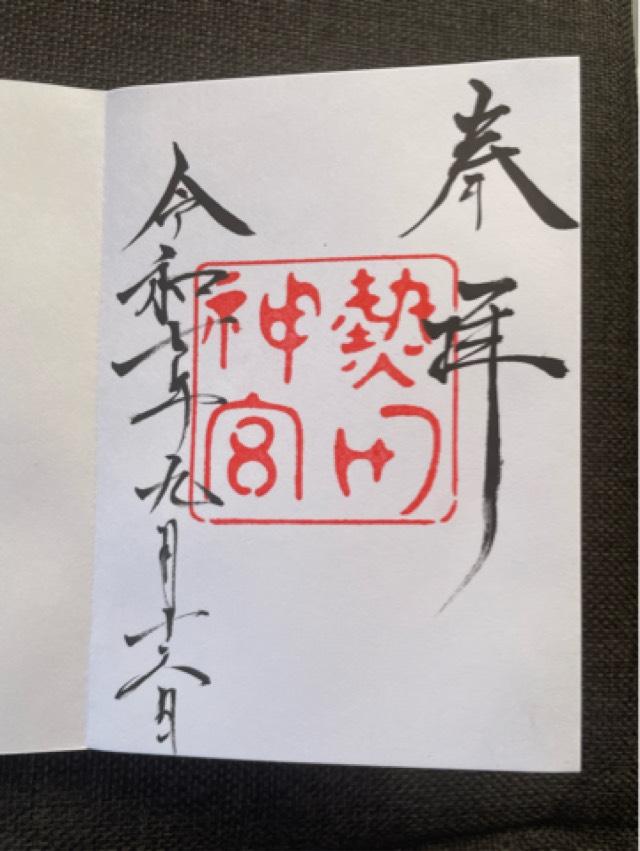 奉拝
熱田
神宮
令和七年九月十六日